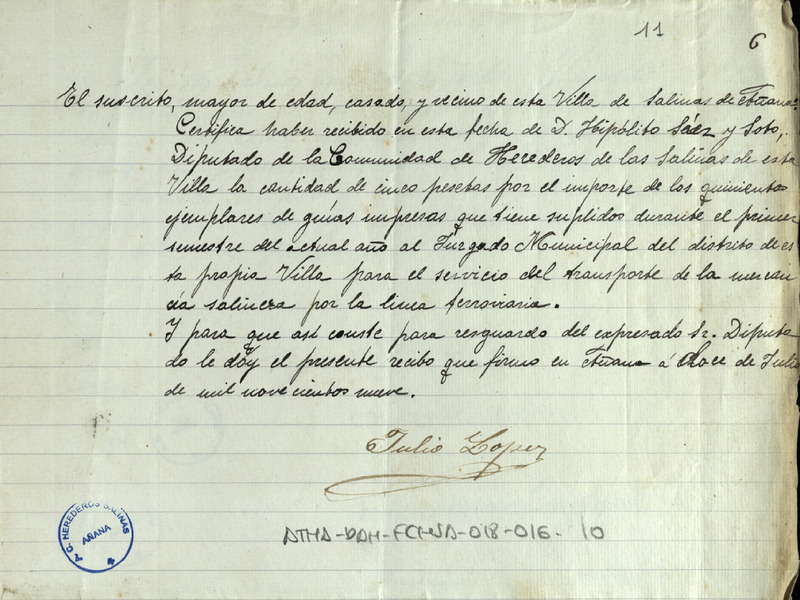 11
6
El suscrito, mayor de edad, casado, y vecino de esta Villa de Salinas de Añana.
Certifica haber recibido en esta fecha de D. Hipólito Sáez y Soto,
Diputado de la Comunidad de Herederos de las Salinas de esta
Villa la cantidad de cinco pesetas por el importe de los quinientos
ejemplares de guías impresas que tiene suplidos durante el primer
semestre del actual año al Juzgado Municipal del distrito de es
ta propia Villa para el servicio del transporte de la mercan
cía salinera por la linea ferroviaria.
Y para que así conste para resguardo del expresado Sr. Diputa
do le doy el presente recibo que firmo en Añana á doce de Julio
de mil novecientos nueve.
Julio Lopez
ATHA-DAH-FCHSA-018-016-10
C. HEREDEROS SALINAS
AÑANA